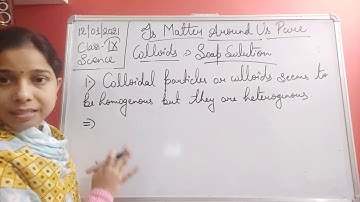 12/03/2021
Class-IX
Science
Is Matter Around Us Pure
Colloids → Soap Solution
1) Colloidal particles or colloids seems to
be homogenous but they are heterogenous
⇒)